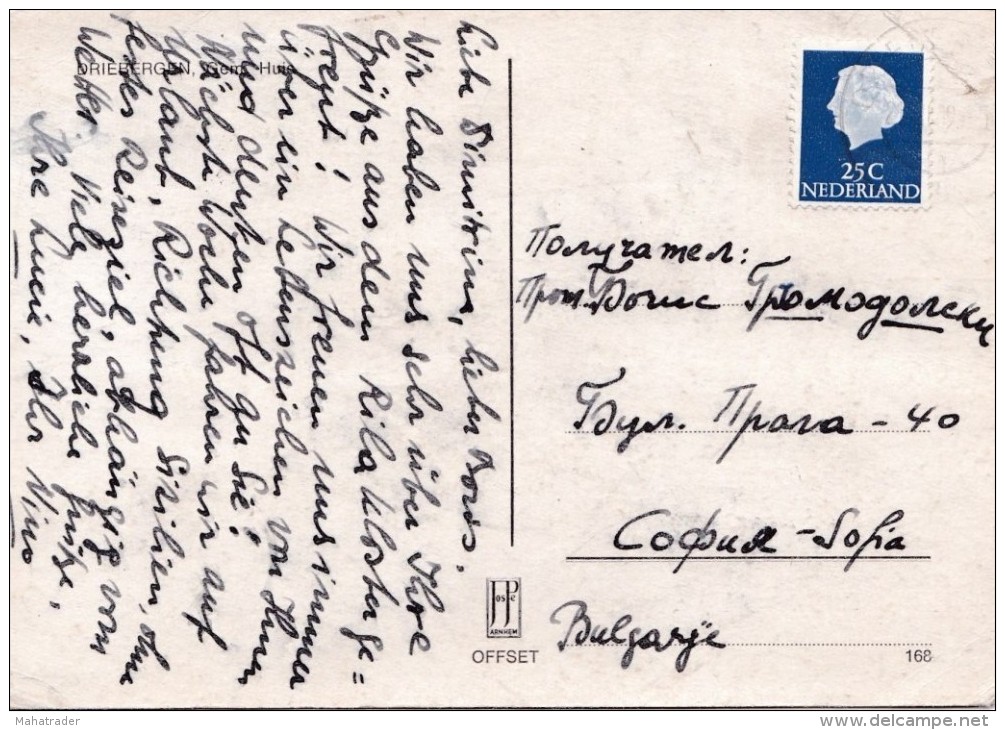 DRIEBERGEN, Gem. Huis
Liebe Dimitrina, lieber Boris,
Wir haben uns sehr über Ihre
Grüße aus dem Rila Kloster ge=
freut! Wir freuen uns immer
über ein Lebenszeichen von Ihnen
und denken oft an Sie!
Nächste Woche fahren wir auf
Urlaub, Richtung Sizilien, ohne
festes Reiseziel, abhängig vom
Wetter. Viele herzliche Grüße,
Ihre Lucie, Ihr Vino
25 C
NEDERLAND
Получател:
Прот. Борис Громодолски
Бул. Прага - 40
София - Sofia
Bulgarije
JosPe
ARNHEM
OFFSET
168
Mahatrader
delcampe.net